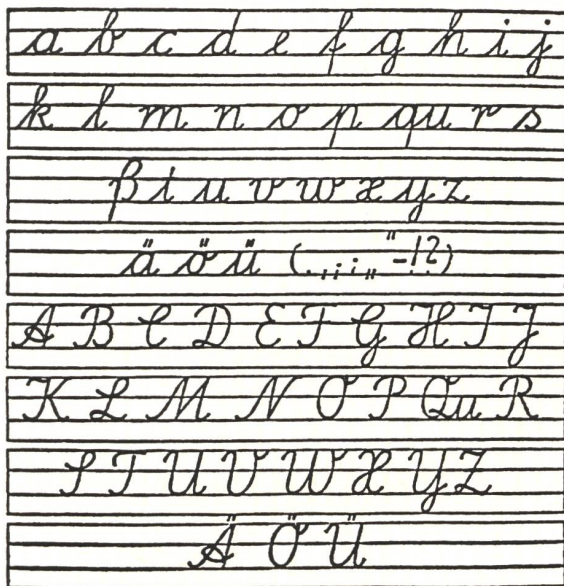 a b c d e f g h i j
k l m n o p qu r s
ß t u v w x y z
ä ö ü ( . , ; : „ “ - ! ? )
A B C D E F G H I J
K L M N O P Qu R
S T U V W X Y Z
Ä Ö Ü